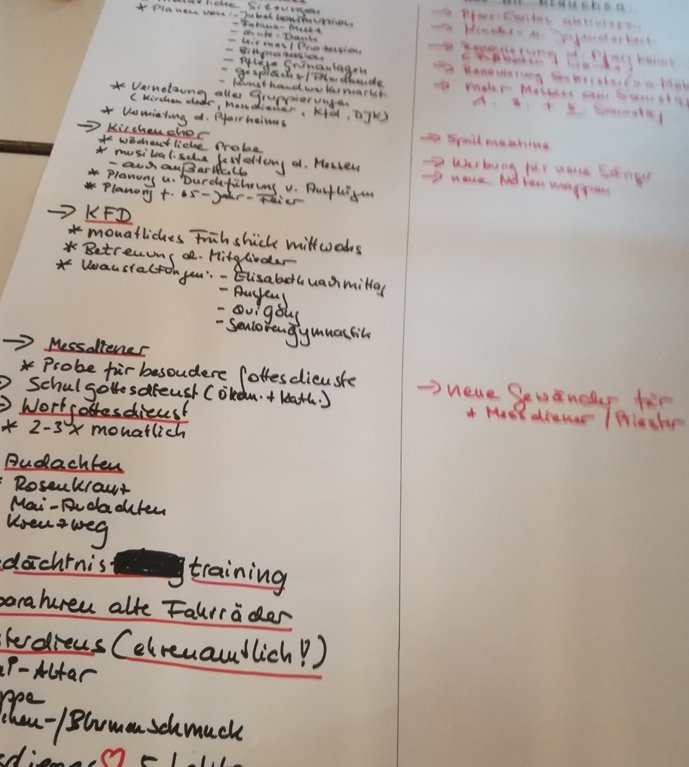 Sitzungen
* Planen von: - Jubelkommunion
- Fatima-Messe
- Ernte-Dank
- Kirmes/Prozession
- Bittprozession
- Pflege Grünanlagen
- Kunsthandwerkermarkt
* Vernetzung aller Gruppierungen
(Kirchenchor, Messdiener, Kfd, DJK)
* Vermietung d. Pfarrheims
→ Kirchenchor
* wöchentliche Probe
* musikalische Gestaltung d. Messen
- auch außerhalb
* Planung u. Durchführung v. Ausflügen
* Planung f. 65-Jahr-Feier
→ KFD
* monatliches Frühstück mittwochs
* Betreuung d. Mitglieder
* Veranstaltungen: - Elisabethnachmittag
- Ausflug
- Quigong
- Seniorengymnastik
→ Messdiener
* Probe für besondere Gottesdienste
Schulgottesdienst (ökum. + kath.)
Wortgottesdienst
* 2-3 x monatlich
Andachten
Rosenkranz
Mai-Andachten
Kreuzweg
dächtnis training
parahren alte Fahrräder
terdiens (ehrenamtlich!)
-Altar
ppe
chen-/Blumenschmuck
→ Pfarr-Caritas
→ Kinder- u. Jugendarbeit
→ Renovierung d. Pfarrheims
→ Renovierung
→ mehr Messen am Samstag
1. 3. + 5. Samstag
→ Spülmaschine
→ Werbung für neue Sänger
→ neue Notenmappen
→ neue Gewänder für
+ Messdiener/Priester